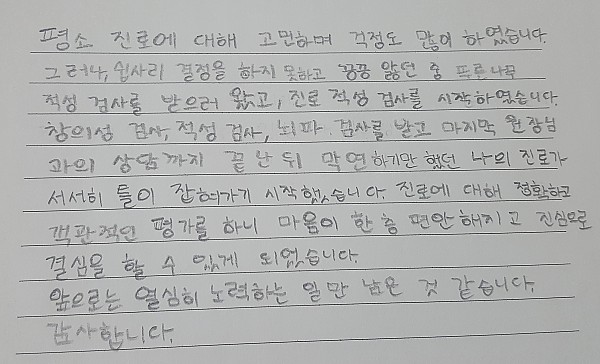 평소 진로에 대해 고민하며 걱정도 많이 하였습니다.
그러나, 쉽사리 결정을 하지 못하고 끙끙 앓던 중 푸른나무
적성 검사를 받으러 왔고, 진로 적성 검사를 시작하였습니다.
창의성 검사, 적성 검사, 뇌파 검사를 받고 마지막 원장님
과의 상담까지 끝난 뒤 막연하기만 했던 나의 진로가
서서히 틀이 잡혀가기 시작했습니다. 진로에 대해 정확하고
객관적인 평가를 하니 마음이 한 층 편안해지고 진심으로
결심을 할 수 있게 되었습니다.
앞으로는 열심히 노력하는 일만 남은 것 같습니다.
감사합니다.